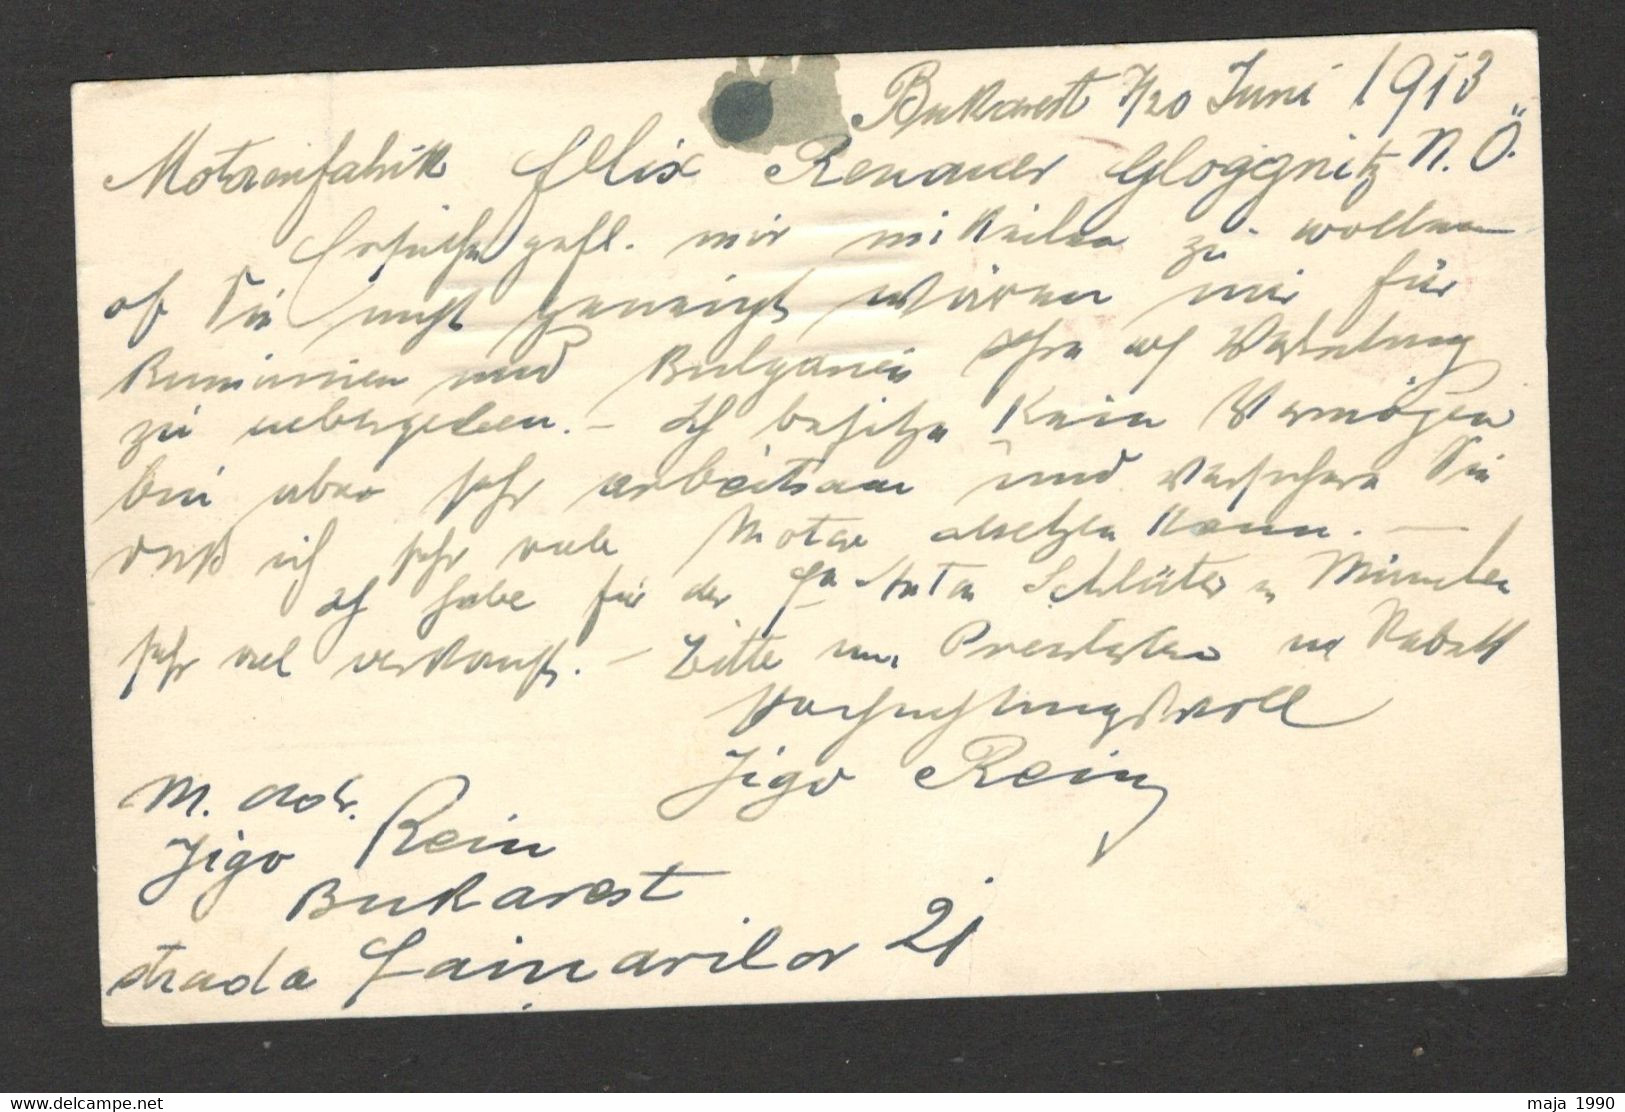 Bukarest 7/20 Juni 1913
Motorenfabrik Felix Renauer Gloggnitz N. Ö.
Ersuche gefl. mir mitteilen zu wollen
ob Sie nicht geneigt wären mir für
Rumänien und Bulgarien Ihre Vertretung
zu uebergeben. — Ich besitze kein Vermögen
bin aber sehr arbeitsam und versichere Sie
daß ich sehr viele Motore absetzen kann. —
Ich habe für die Fa Anton Schlüter in München
sehr viel verkauft. — Bitte um Preislisten und Rabatt
Hochachtungsvoll
Jigo Rein
M. Adr.
Jigo Rein
Bukarest
strada Fainarilor 21
maja 1990
delcampe.net